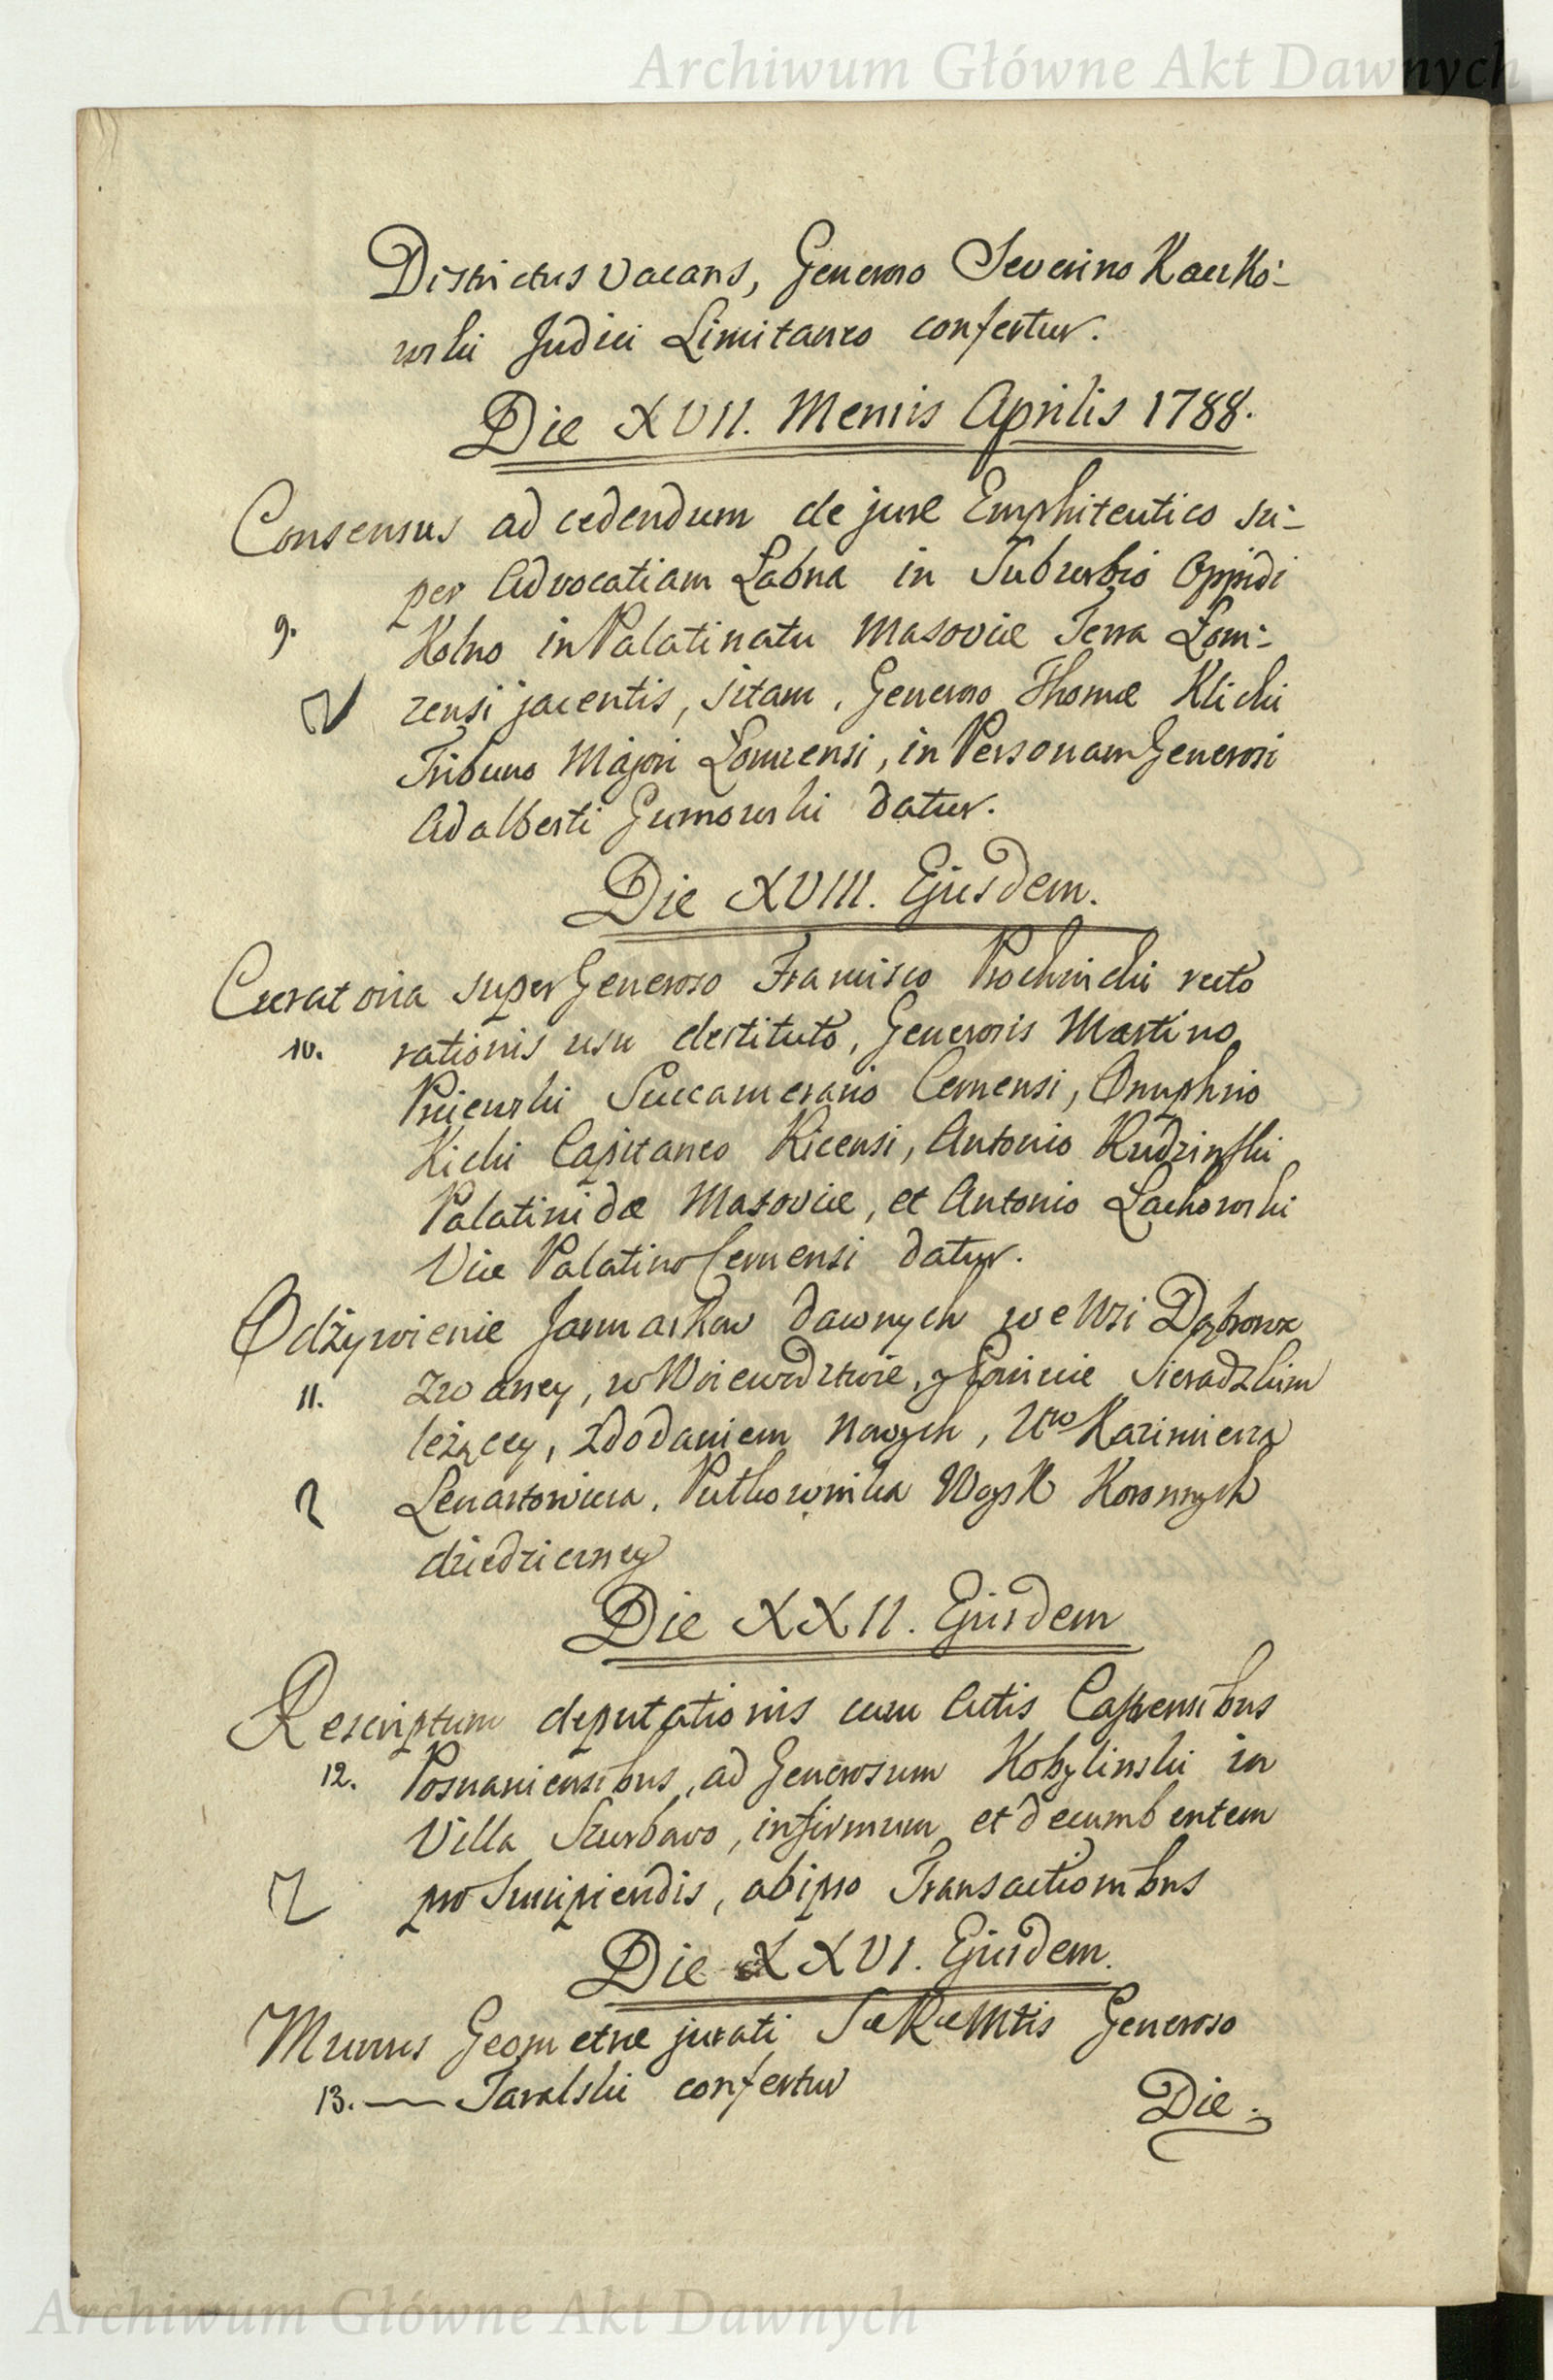 Archiwum Główne Akt Dawnych
Districtus vacans, Generoso Severino Kaczko-
wski Judici Limitaneo confertur.
Die XVII. Mensis Aprilis 1788.
Consensus ad cedendum de jure Emphiteutico su-
per Advocatiam Łabna in Suburbio Oppidi
9. Kolno in Palatinatu Masoviæ Terra Łom-
zensi jacentis, sitam, Generoso Thomæ Klicki
Tribuno Majori Łomzensi, in Personam Generosi
Adalberti Gumowski datur.
Die XVIII. Ejusdem.
Curatoria super Generoso Francisco Prochnicki recto
10. rationis usu destituto, Generosis Martino
Succamerario Cernensi, Onuphrio
Kicki Capitaneo Kicensi, Antonio Rudzinski
Palatinidæ Masoviæ, et Antonio Lachowski
Vice Palatino Cernensi datur.
Odżywienie Jarmarkow dawnych we Wsi Dąbrowa
11. zwaney, w Woiewodztwie, y Powiecie Sieradzkim
leżącey, z dodaniem nowych, Uro Kazimierza
Lenartowicza, Pułkownika Woysk Koronnych
dziedziczney
Die XXII. Ejusdem
Rescriptum deputationis cum Actis Castrensibus
12. Posnaniensibus, ad Generosum Kobylinski in
Villa infirmum et decumbentem
pro Suscipiendis, ab ipso Transactionibus
Die XXVI. Ejusdem.
Munus Geometræ jurati SæRæMtis Generoso
13. — Taralski confertur
Die.
Archiwum Główne Akt Dawnych